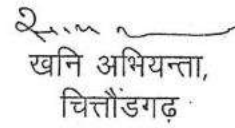 खनि अभियन्ता,
चित्तौंडगढ़